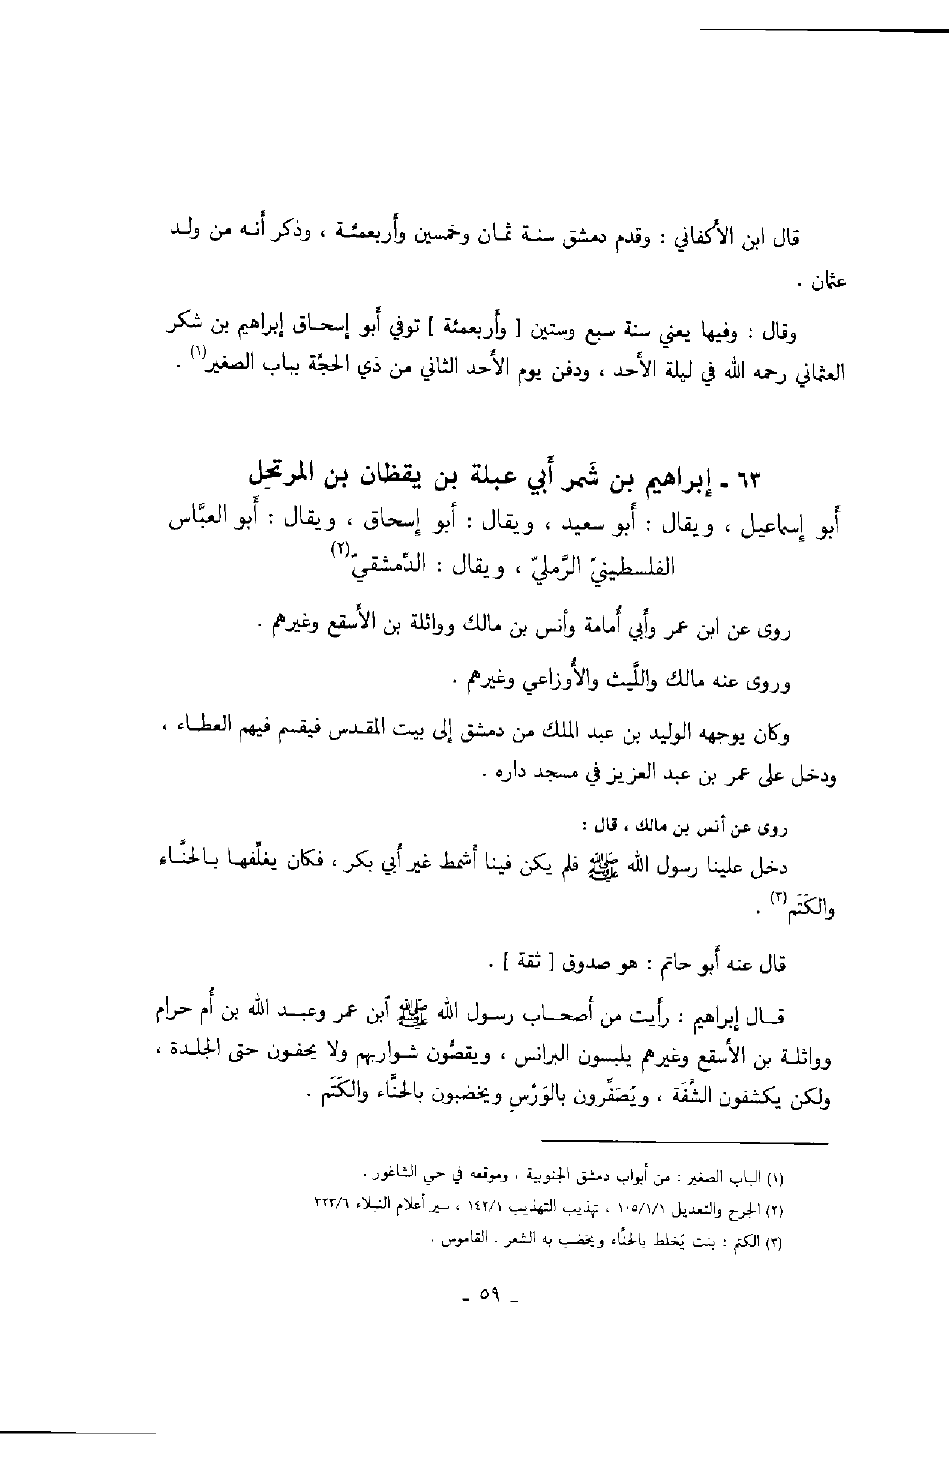 قال ابن الأكفاني : وقدم دمشق سنة ثمان وخمسين وأربعمئة ، وذكر أنه من ولد
عثمان .
وقال : وفيها يعني سنة سبع وستين [ وأربعمئة ] توفي أبو إسحاق إبراهيم بن شكر
العثماني رحمه الله في ليلة الأحد ، ودفن يوم الأحد الثاني من ذي الحجّة بباب الصغير(١) .
٦٣ - إبراهيم بن شَمر أبي عبلة بن يقظان بن المرتحل
أبو إسماعيل ، ويقال : أبو سعيد ، ويقال : أبو إسحاق ، ويقال : أبو العبَّاس
الفلسطينيّ الرَّمليّ ، ويقال : الدِّمشقيّ(٢)
روى عن ابن عمر وأبي أُمامة وأنس بن مالك وواثلة بن الأسقع وغيرهم .
وروى عنه مالك واللَّيث والأوزاعي وغيرهم .
وكان يوجهه الوليد بن عبد الملك من دمشق إلى بيت المقدس فيقسم فيهم العطاء ،
ودخل على عمر بن عبد العزيز في مسجد داره .
روى عن أنس بن مالك ، قال :
دخل علينا رسول الله ﷺ فلم يكن فينا أشمط غير أبي بكر ، فكان يغلِّفها بالحنَّاء
والكَتَم(٣) .
قال عنه أبو حاتم : هو صدوق [ ثقة ] .
قال إبراهيم : رأيت من أصحاب رسول الله ﷺ آبن عمر وعبد الله بن أم حرام
وواثلة بن الأسقع وغيرهم يلبسون البرانس ، ويقصُّون شواربهم ولا يحفون حتى الجلدة ،
ولكن يكشفون الشَّفَة ، ويُصَفِّرون بالوَرْسِ ويخضبون بالحنَّاء والكَتَم .
(١) الباب الصغير : من أبواب دمشق الجنوبية ، وموقعه في حي الشاغور .
(٢) الجرح والتعديل ١٠٥/١/١ ، تهذيب التهذيب ١٤٢/١ ، سير أعلام النبلاء ٣٢٣/٦
(٣) الكتم : نبت يُخلط بالحنَّاء ويخضب به الشعر . القاموس .
- ٥٩ -